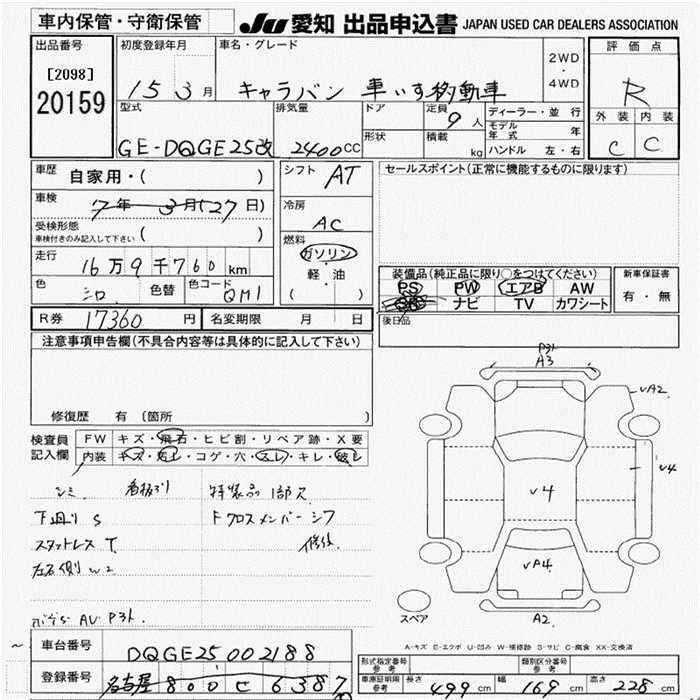 車内保管・守衛保管
JU 愛知 出品申込書 JAPAN USED CAR DEALERS ASSOCIATION
出品番号
[2098]
20159
初度登録年月
15 3月
車名・グレード
キャラバン 車いす移動車
2WD
・
4WD
評価点
R
外装 内装
C C
型式
GE-DQGE25改
排気量
2400CC
ドア
形状
定員
9人
積載
kg
ディーラー・並行
モデル年式 年
ハンドル 左・右
車歴
自家用・( )
車検
7年 3月(27日)
受検形態
車検付きのみ記入して下さい ( )
走行
16万9千760km
色
シロ
色替
色コード
QM1
シフト
AT
冷房
AC
燃料
ガソリン
・
軽・油
( )
セールスポイント(正常に機能するものに限ります)
装備品(純正品に限り○をつけてください)
PS PW エアB AW
SR ナビ TV カワシート
新車保証書
有・無
後日品
R券 17360円
名変期限 月 日
注意事項申告欄(不具合内容等は具体的に記入して下さい)
修復歴 有 (箇所 )
検査員
記入欄
FW キズ・飛石・ヒビ割・リペア跡・X要
内装 キズ・汚レ・コゲ・穴・スレ・キレ・破レ
シミ 看板ぶり 特装品1部欠
下回り S Fクロスメンバーシワ
スタットレス T 修後
左右側 W2
AU P3ト
P3ト
A3
VA2
V4
V4
VA4
A2
スペア
A-キズ E-エクボ U-凹み W-補修跡 S-サビ C-腐食 XX-交換済
車台番号
DQGE25 002188
登録番号
名古屋 800 せ 6387
形式指定番号
参考
類別区分番号
参考
車庫証明用
参考
長さ 499cm
幅 169cm
高さ 228cm